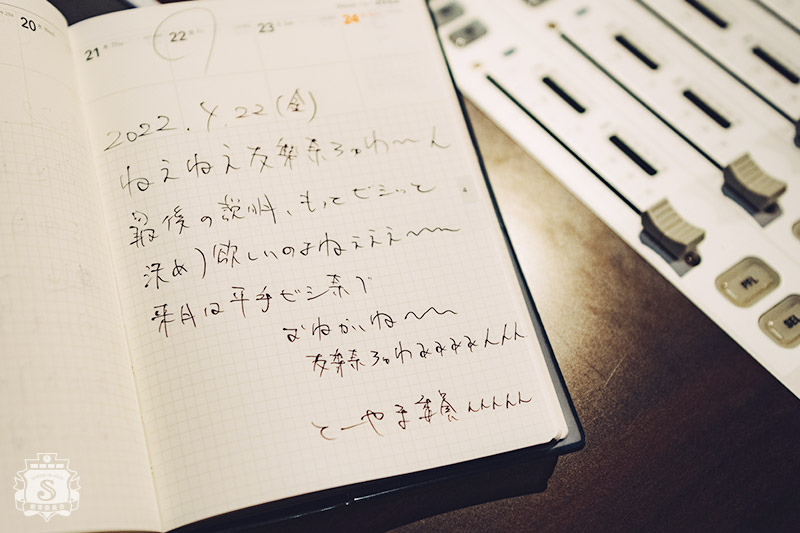 20
21
22
23
24
2022.4.22(金)
ねえねえ友梨奈ちゃわ〜ん
最後の説明、もっとビシっと
決めて欲しいのよねえええ〜〜
来月は平手ビシ奈で
おねがいね〜〜
友梨奈ちゃわぁぁぁぁんんん
とーやま校長んんんんん
PFL
SEL
S